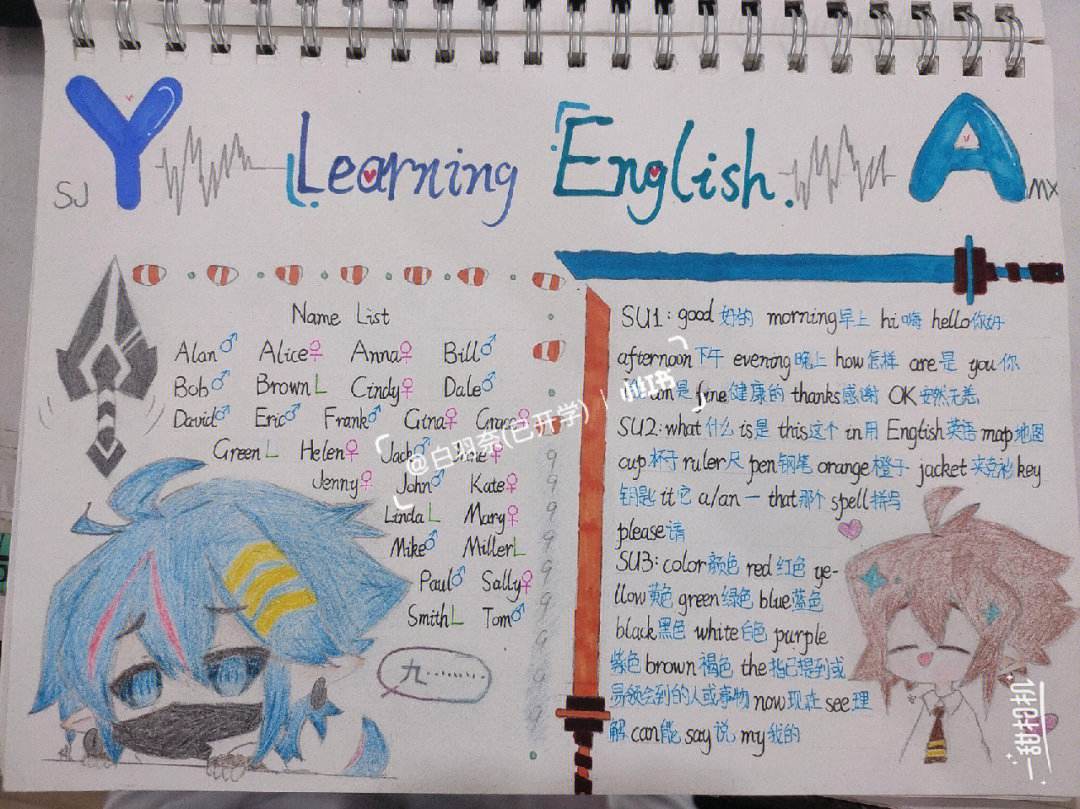 Y Learning English. A
SJ
MX
Name List
Alan♂ Alice♀ Anna♀ Bill♂
Bob♂ Brown L Cindy♀ Dale♂
David♂ Eric♂ Frank♂ Gina♀ Grace♀
Green L Helen♀ Jack♂ Jane♀
Jenny♀ John♂ Kate♀
Linda L Mary♀
Mike♂ Miller L
Paul♂ Sally♀
Smith L Tom♂
九........
SU1:good 好的 morning早上 hi 嗨 hello你好
afternoon下午 evening晚上 how怎样 are是 you你
是 fine健康的 thanks感谢 OK安然无恙
SU2:what什么 is是 this这个 in用 English英语 map地图
cup杯子 ruler尺 pen钢笔 orange橙子 jacket夹克衫 key
钥匙 it它 a/an一 that那个 spell拼写
please请
SU3:color颜色 red红色 ye-
llow黄色 green绿色 blue蓝色
black黑色 white白色 purple
紫色 brown褐色 the指已提到或
易领会到的人或事物 now现在 see理
解 can能 say说 my我的
@白羽奈(已开学)
小红书
一甜相机